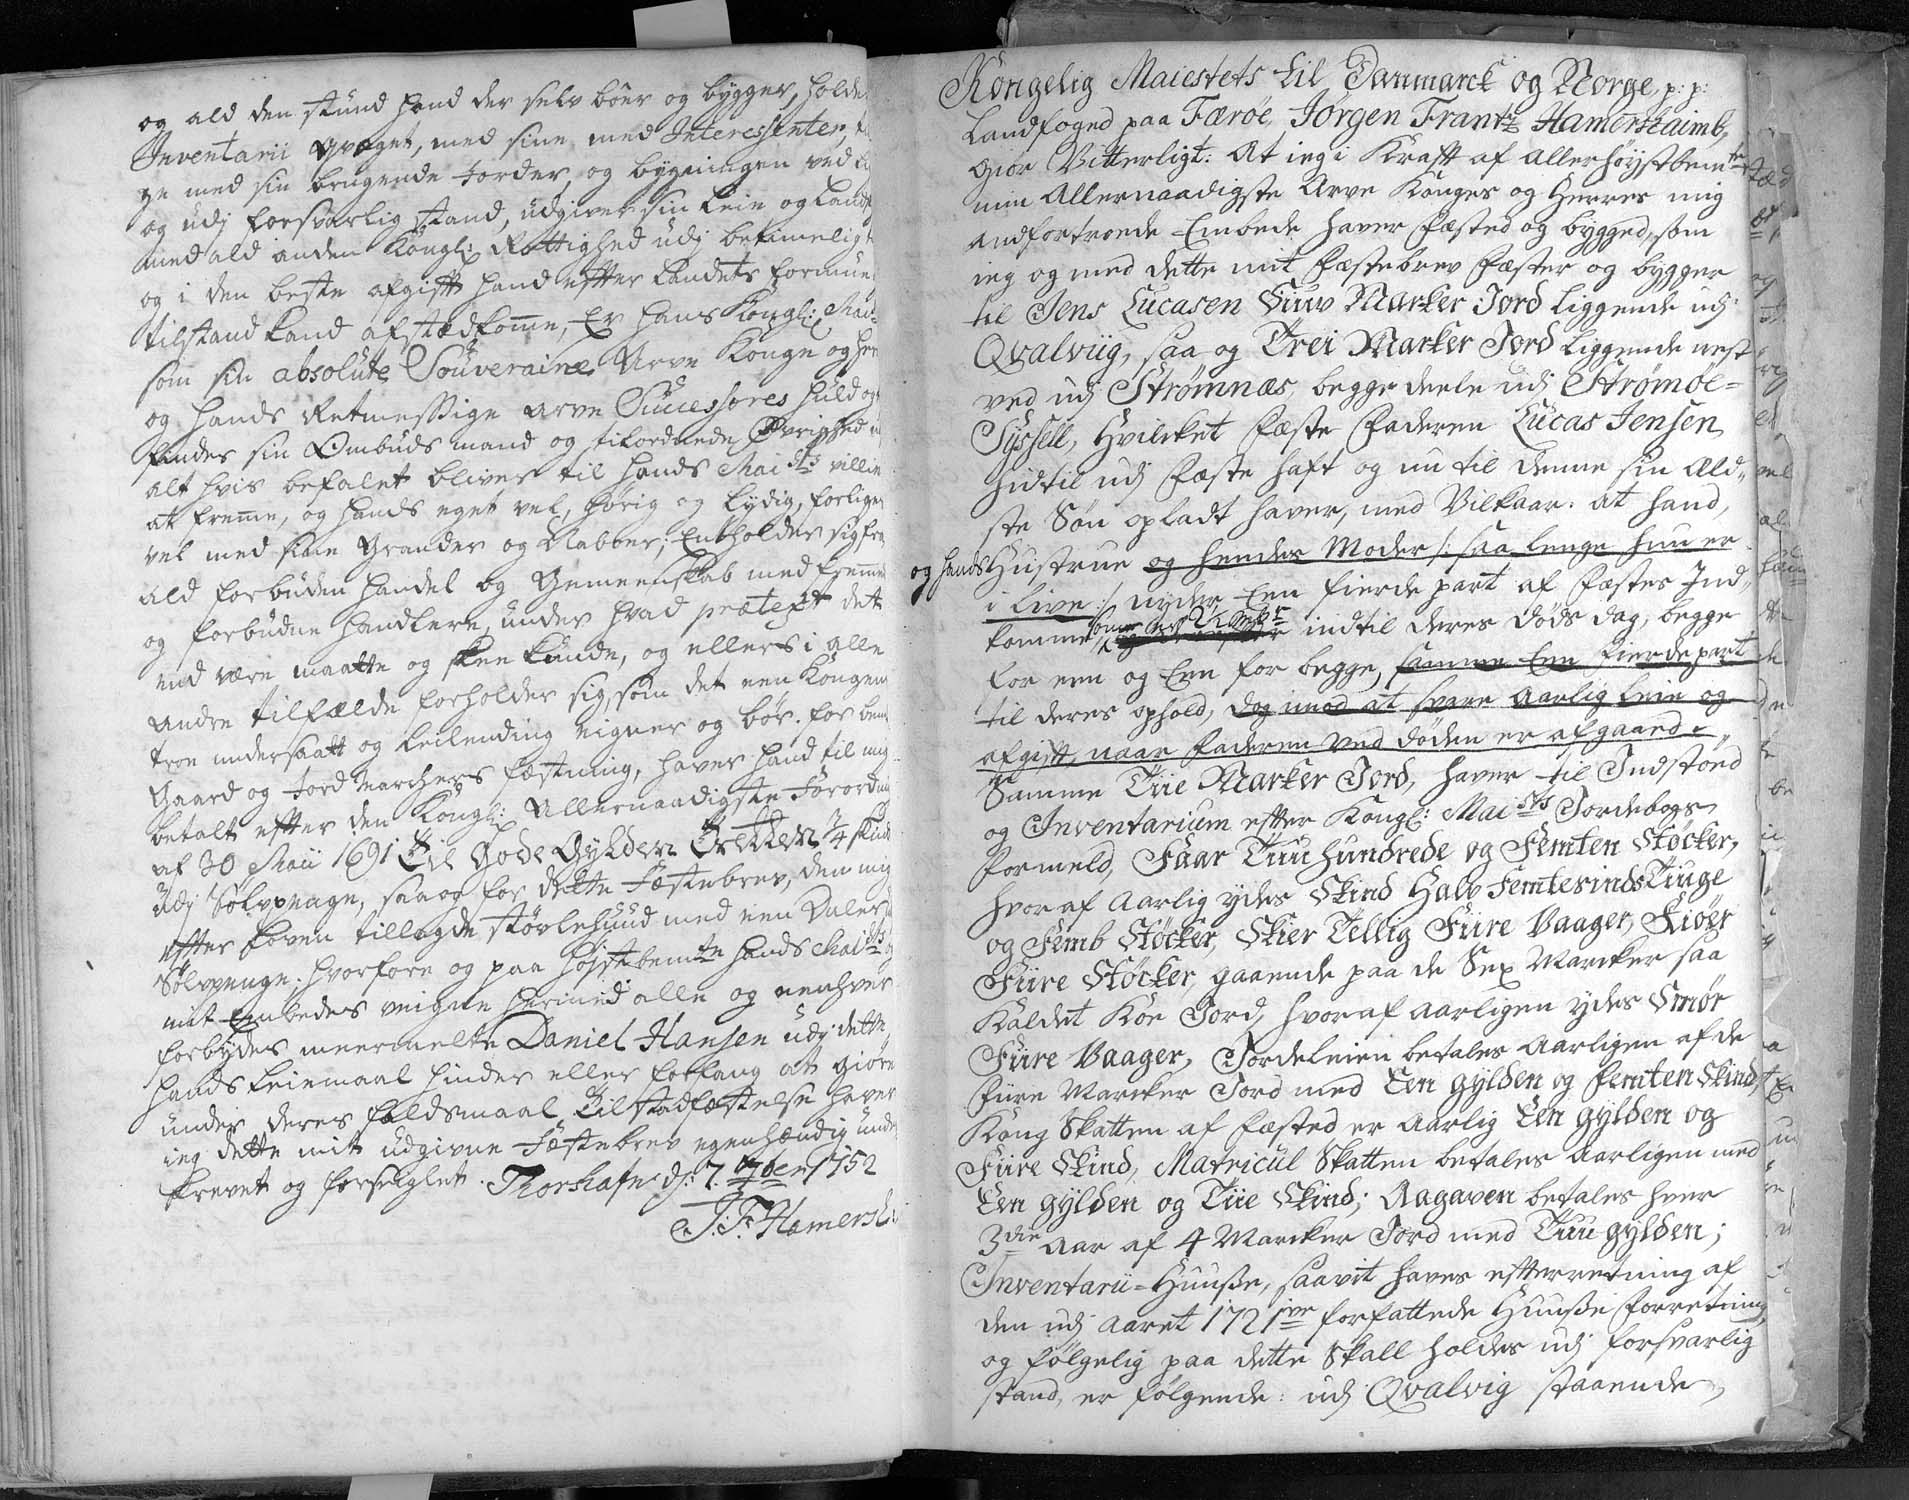 og ald den stund hand der selv böer og bygger, holde
Inventarii qvæget, med sine med Interessenter,
ge med sin brugende Jorder, og bygningen ved
og udj forsvarlig stand, udgiver sin leie og Land
med ald anden Kongl: Rettighed udj betimelig
og i den beste afgifft hand effter Landets formue
tilstand kand afstædkome, Er hans Kongl: Mai
som sin absolute Souveraine Arve Konge og her
og hands Retmessige arve Successores huld og
findes sin Ombuds mand og tilordnede Øvrighed
alt hvis befalet bliver til hands Maits villie
at freme, og hands eget vel, hörig og lydig, forliges
vel med sine Grander og Nabber; Entholder sig fra
ald forbuden handel og Gemeenskab med freme
og forbudne handlere, under hvad prætext det
end være maatte og skee kunde, og ellers i alle
andre tilfælde forholder sig, som det een Kongens
troe undersaatt og leilending eigner og bör. for bem
Gaard og Jord Marchers fæstning, haver hand til mig
betalt effter den Kongl: Allernaadigste Forordn
af 30 Maii 1691 Tie Gode Gylden Tretten 3/4 skind
udj Sølvpenge, saa og for dette Fæstebrev, den mig
effter loven tillagde støvlehuud med een Daler
Sølvpenge; hvorfore og paa höjstbemte hands Maits
mit Embedes veigne hermed alle og eenhver
forbydes meermelte Daniel Hansen udj dette
hands leiemaal hinder eller forfang at giöre
under deres faldsmaal. Til stadfæstelse haver
ieg dette mit udgivne Fæstebrev egenhændig under
skrevet og forseiglet. Thorshafn d: 7. 7ber 1752
J: F: Hamersh
Kongelig Maiestets til Danmarck og Norge, p: p:
Landfoged paa Færöe, Jörgen Frantz Hamershaimb,
giör Vitterligt: At ieg i Krafft af allerhöystbemte
min Allernaadigste Arve Konges og Herres mig
andfortroede Embede haver fæsted og bygged, som
ieg og med dette mit fæstebrev fæster og bygger
til Jens Lucasen Siuv Marker Jord liggende udj
Qvalviig, saa og Trei Marker Jord liggende nest
ved udj Strømnæs, begge deele udj Strømøe=
Syssell, Hvilcket fæste faderen Lucas Jensen
hidtil udj fæste haft og nu til denne sin Æld=
ste Sön opladt haver, med Vilkaar: at hand,
og hands Hustrue og hendes Moder /: saa lenge hun er
i live :/ nyder Een fierde part af fæstes Ind=
komme, indtil deres döds dag, begge
for een og Een for begge, samme Een fierdepart
til deres ophold, dog imod at svare aarlig leie og
afgift, naar faderen ved döden er afgaaed.
Samme Tiie Marker Jord, haver til Indstöed
og Inventarium effter Kongl: Maists Jordebogs
formeld, Faar Tuu hundrede og Femten Støcker,
hvoraf Aarlig ydes Skind Halv Femtesinds Tiuge
og Femb Støcker, Skier Tellig Fiire Vaager, Kiöer
Fiire Støcker, gaaende paa de Sex Marcker saa
Kaldet Köe Jord, hvoraf aarligen ydes Smör
Fiire Vaager, Jordeleien betales Aarligen af de
fiire Marcker Jord med Een gylden og femten Skind,
Kong Skatten af fæsted er Aarlig Een gylden og
Fiire Skind, Matricul Skatten betales Aarligen med
Een gylden og Tiie Skind; Aagaven betales hver
3die Aar af 4 Marcker Jord med Tuu gylden;
Inventarii=Huuße, saavit haves effterretning af
den udj aaret 1721ive forfattede Huuße forretning,
og følgelig paa dette Skall holdes udj forsvarlig
stand, er følgende: udj Qvalvig staaende